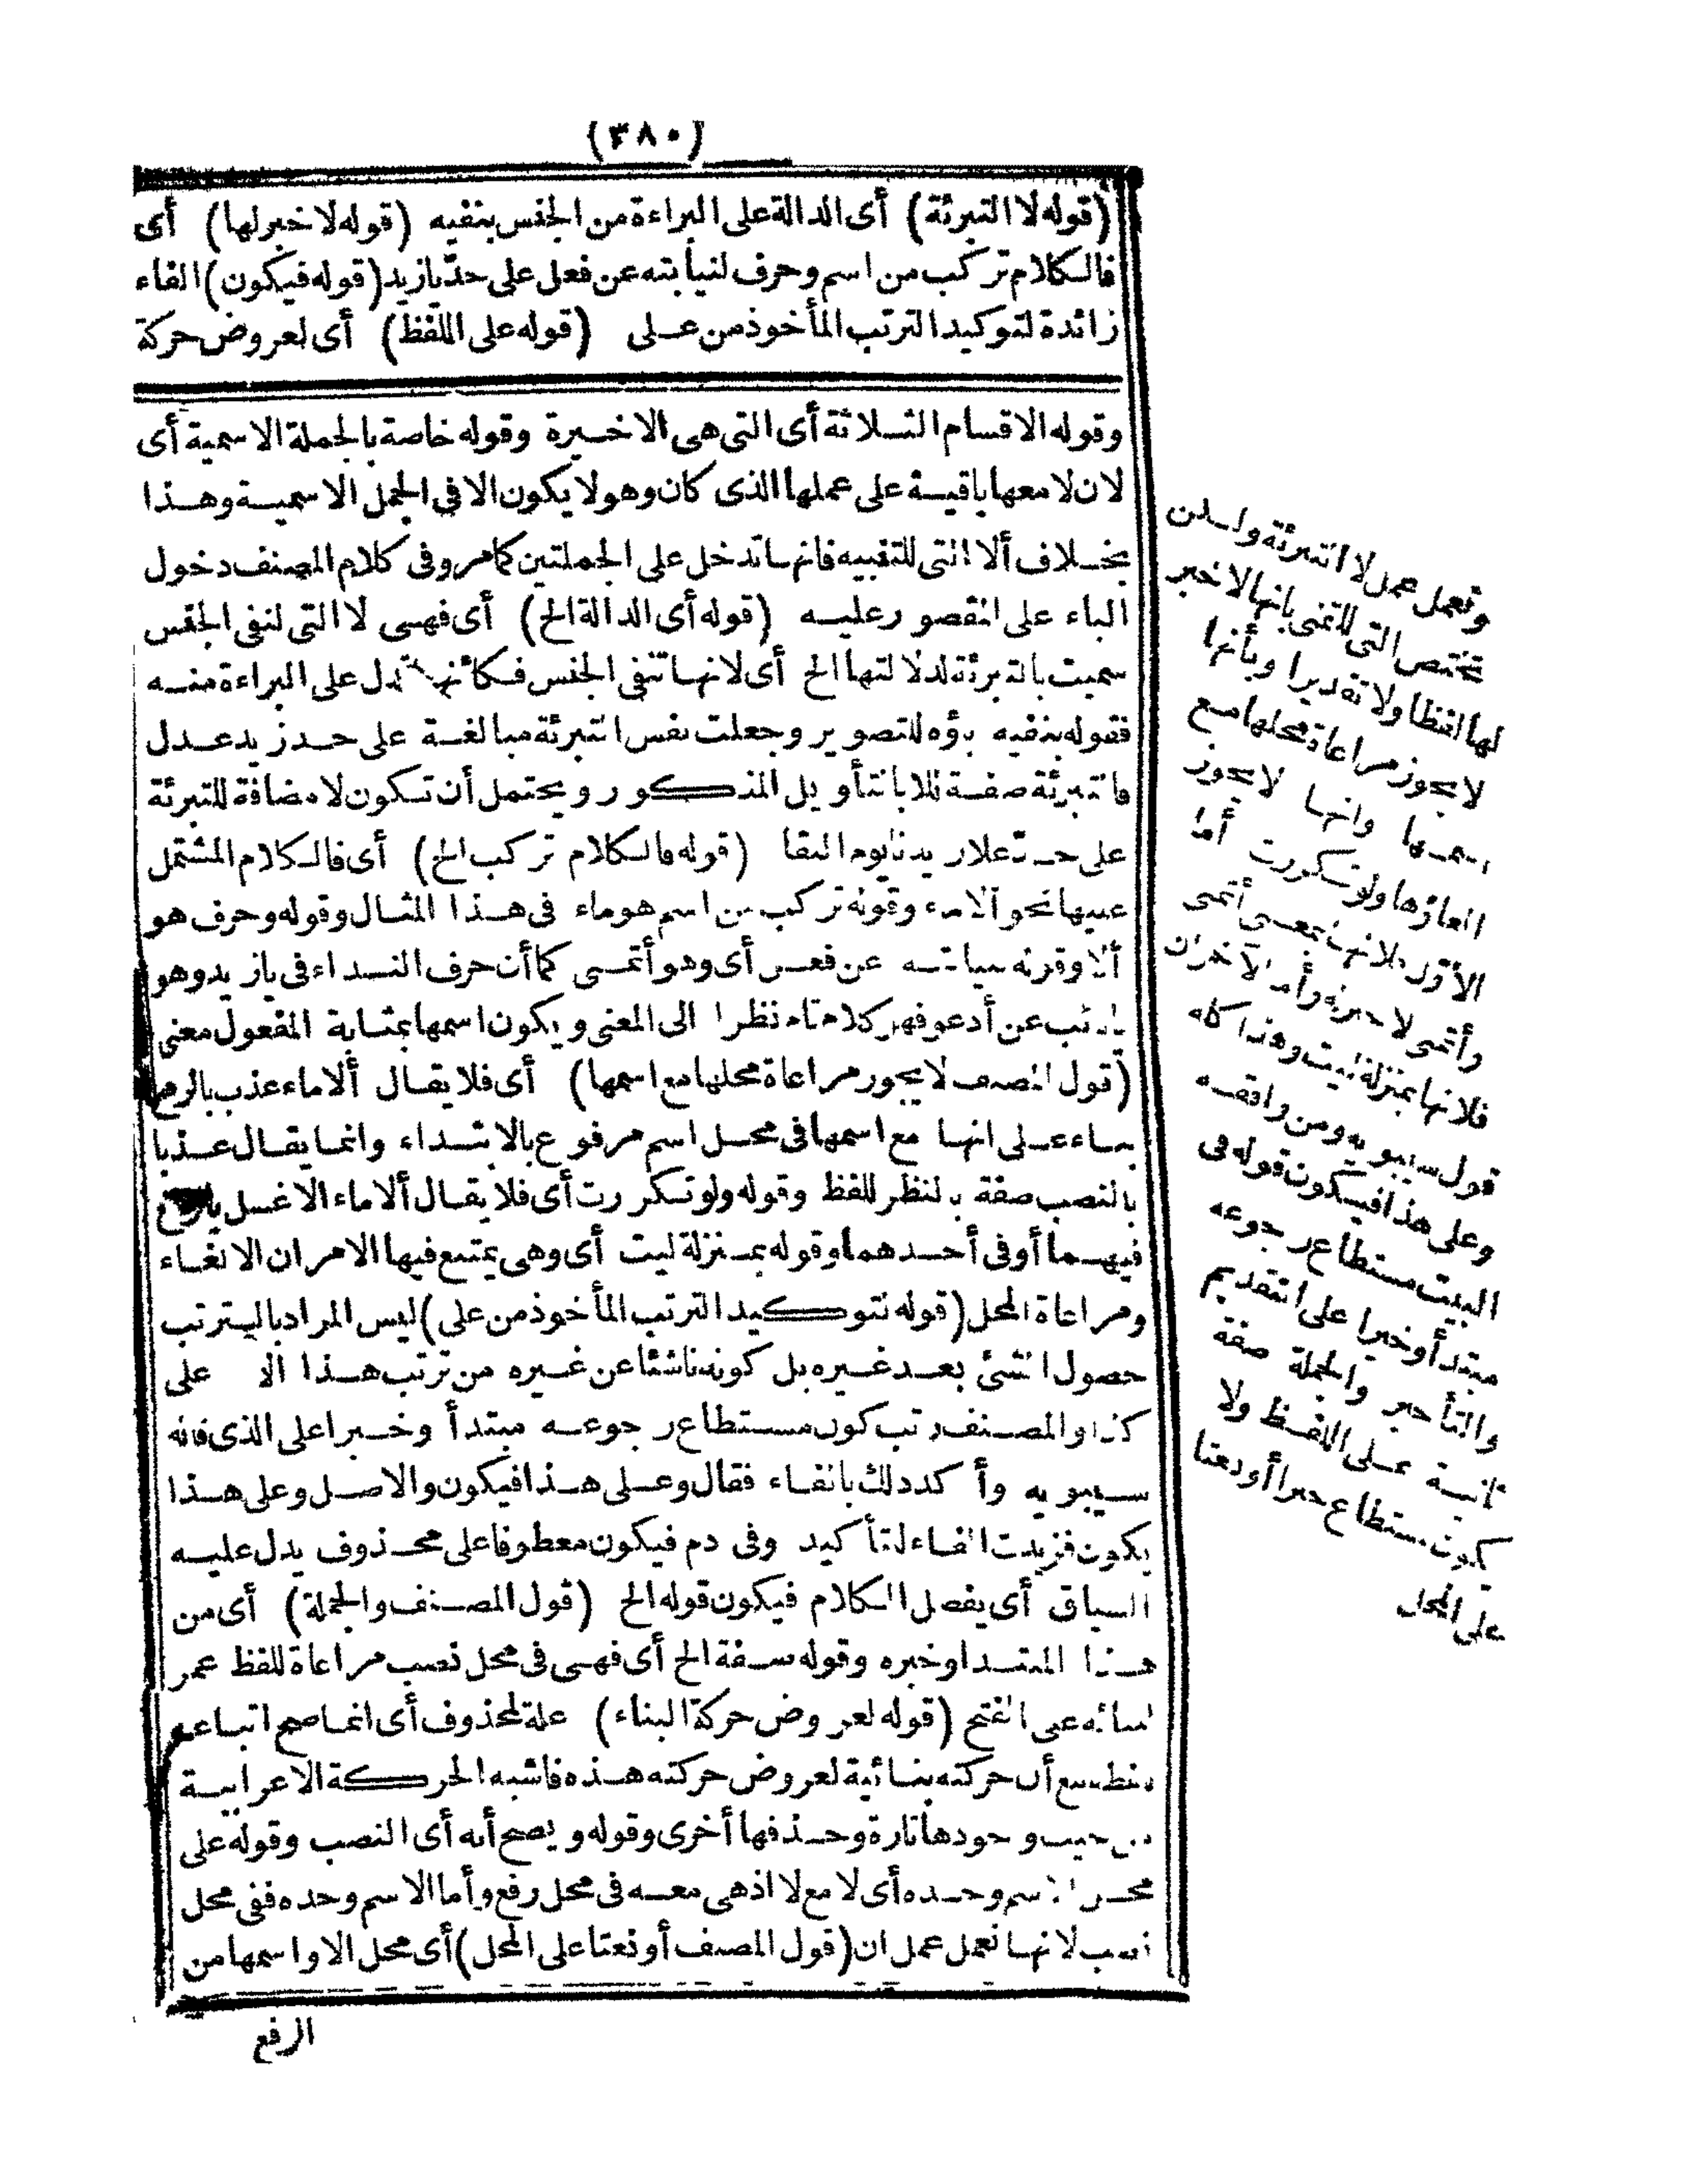 (٣٨٠)
(قوله لا التبرئة) أى الدالة على البراءة من الجنس بنفيه (قوله لا خبر لها) أى
فالكلام تركب من اسم وحرف لنيابته عن فعل على حدّ يا زيد (قوله فيكون) الفاء
زائدة لتوكيد الترتب المأخوذ من على (قوله على اللفظ) أى لعروض حركة
وقوله الاقسام الثلاثة أى التى هى الاخيرة وقوله خاصة بالجملة الاسمية أى
لان لا معها باقية على عملها الذى كان وهو لا يكون الا فى الجمل الاسمية وهذا
بخلاف ألا التى للتنبيه فانها تدخل على الجملتين كما مر وفى كلام المصنف دخول
الباء على المقصور عليه (قوله أى الدالة الخ) أى فهى لا التى لنفى الجنس
سميت بالتبرئة لدلالتها الخ أى لانها تنفى الجنس فكأنها تدل على البراءة منه
فقوله بنفيه باؤه للتصوير وجعلت نفس التبرئة مبالغة على حد زيد عدل
فالتبرئة صفة للا بالتأويل المذكور ويحتمل أن تكون لا مضافة للتبرئة
على حد * علا زيدنا يوم النقا (قوله فالكلام تركب الخ) أى فالكلام المشتمل
عليها نحو ألا ماء وقوله تركب من اسم هو ماء فى هذا المثال وقوله وحرف هو
ألا وقوله لنيابته عن فعل أى وهو أتمنى كما أن حرف النداء فى يا زيد وهو
يا نائب عن أدعو فهو كلام تام نظرا الى المعنى ويكون اسمها بمثابة المفعول معنى
(قول المصنف لا يجوز مراعاة محلها مع اسمها) أى فلا يقال ألا ماء عذب بالرفع
بناء على انها مع اسمها فى محل اسم مرفوع بالابتداء وانما يقال عذبا
بالنصب صفة بالنظر للفظ وقوله ولو تكررت أى فلا يقال ألا ماء الا غسل بالرفع
فيهما أو فى أحدهما وقوله بمنزلة ليت أى وهى يمتنع فيها الامران الالغاء
ومراعاة المحل (قوله لتوكيد الترتب المأخوذ من على) ليس المراد بالترتب
حصول الشئ بعد غيره بل كونه ناشئا عن غيره من ترتب هذا على
كذا والمصنف رتب كون مستطاع رجوعه مبتدأ وخبرا على الذى قاله
سيبويه وأكد ذلك بالفاء فقال وعلى هذا فيكون والاصل وعلى هذا
يكون فزيدت الفاء للتأكيد وفى دم فيكون معطوفا على محذوف يدل عليه
السياق أى يفصل الكلام فيكون قوله الخ (قول المصنف والجملة) أى من
هذا المبتدا وخبره وقوله صفة الخ أى فهى فى محل نصب مراعاة للفظ عمر
لبنائه على الفتح (قوله لعروض حركة البناء) علة لمحذوف أى انما صح اتباعه
لفظه مع أن حركته بنائية لعروض حركته هذه فاشبه الحركة الاعرابية
من حيث وجودها تارة وحذفها أخرى وقوله ويصح أنه أى النصب وقوله على
محل الاسم وحده أى لا مع لا اذ هى معه فى محل رفع وأما الاسم وحده ففى محل
نصب لانها تعمل عمل ان (قول المصنف أو نعتا على المحل) أى محل الا واسمها من
الرفع
وتعمل عمل لا التبرئة ولكن
تختص التى للتمنى بانها لا خبر
لها لفظا ولا تقديرا وبأنها
لا يجوز مراعاة محلها مع
اسمها وانها لا يجوز
الغاؤها ولو تكررت أما
الأوّل فلانها بمعنى أتمنى
وأتمنى لا خبر له وأما الآخران
فلانها بمنزلة ليت وهذا كله
قول سيبويه ومن وافقه
وعلى هذا فيكون قوله فى
البيت مستطاع رجوعه
مبتدأ وخبرا على التقديم
والتأخير والجملة صفة
ثانية على اللفظ ولا
يكون مستطاع خبرا أو نعتا
على المحل